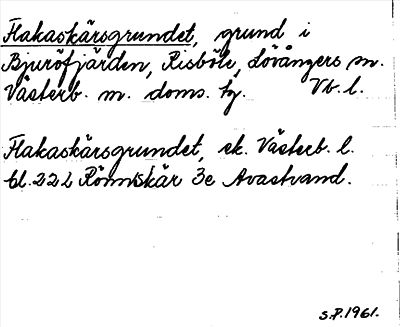 Flakaskärsgrundet, grund i
Bjuröfjärden, Risböle, Lövångers sn.
Västerb. m. doms. hj. Vb. l.
Flakaskärsgrundet, ek. Västerb. l.
bl. 22 L Rönnskär 3e Avastrand.
S.P. 1961.